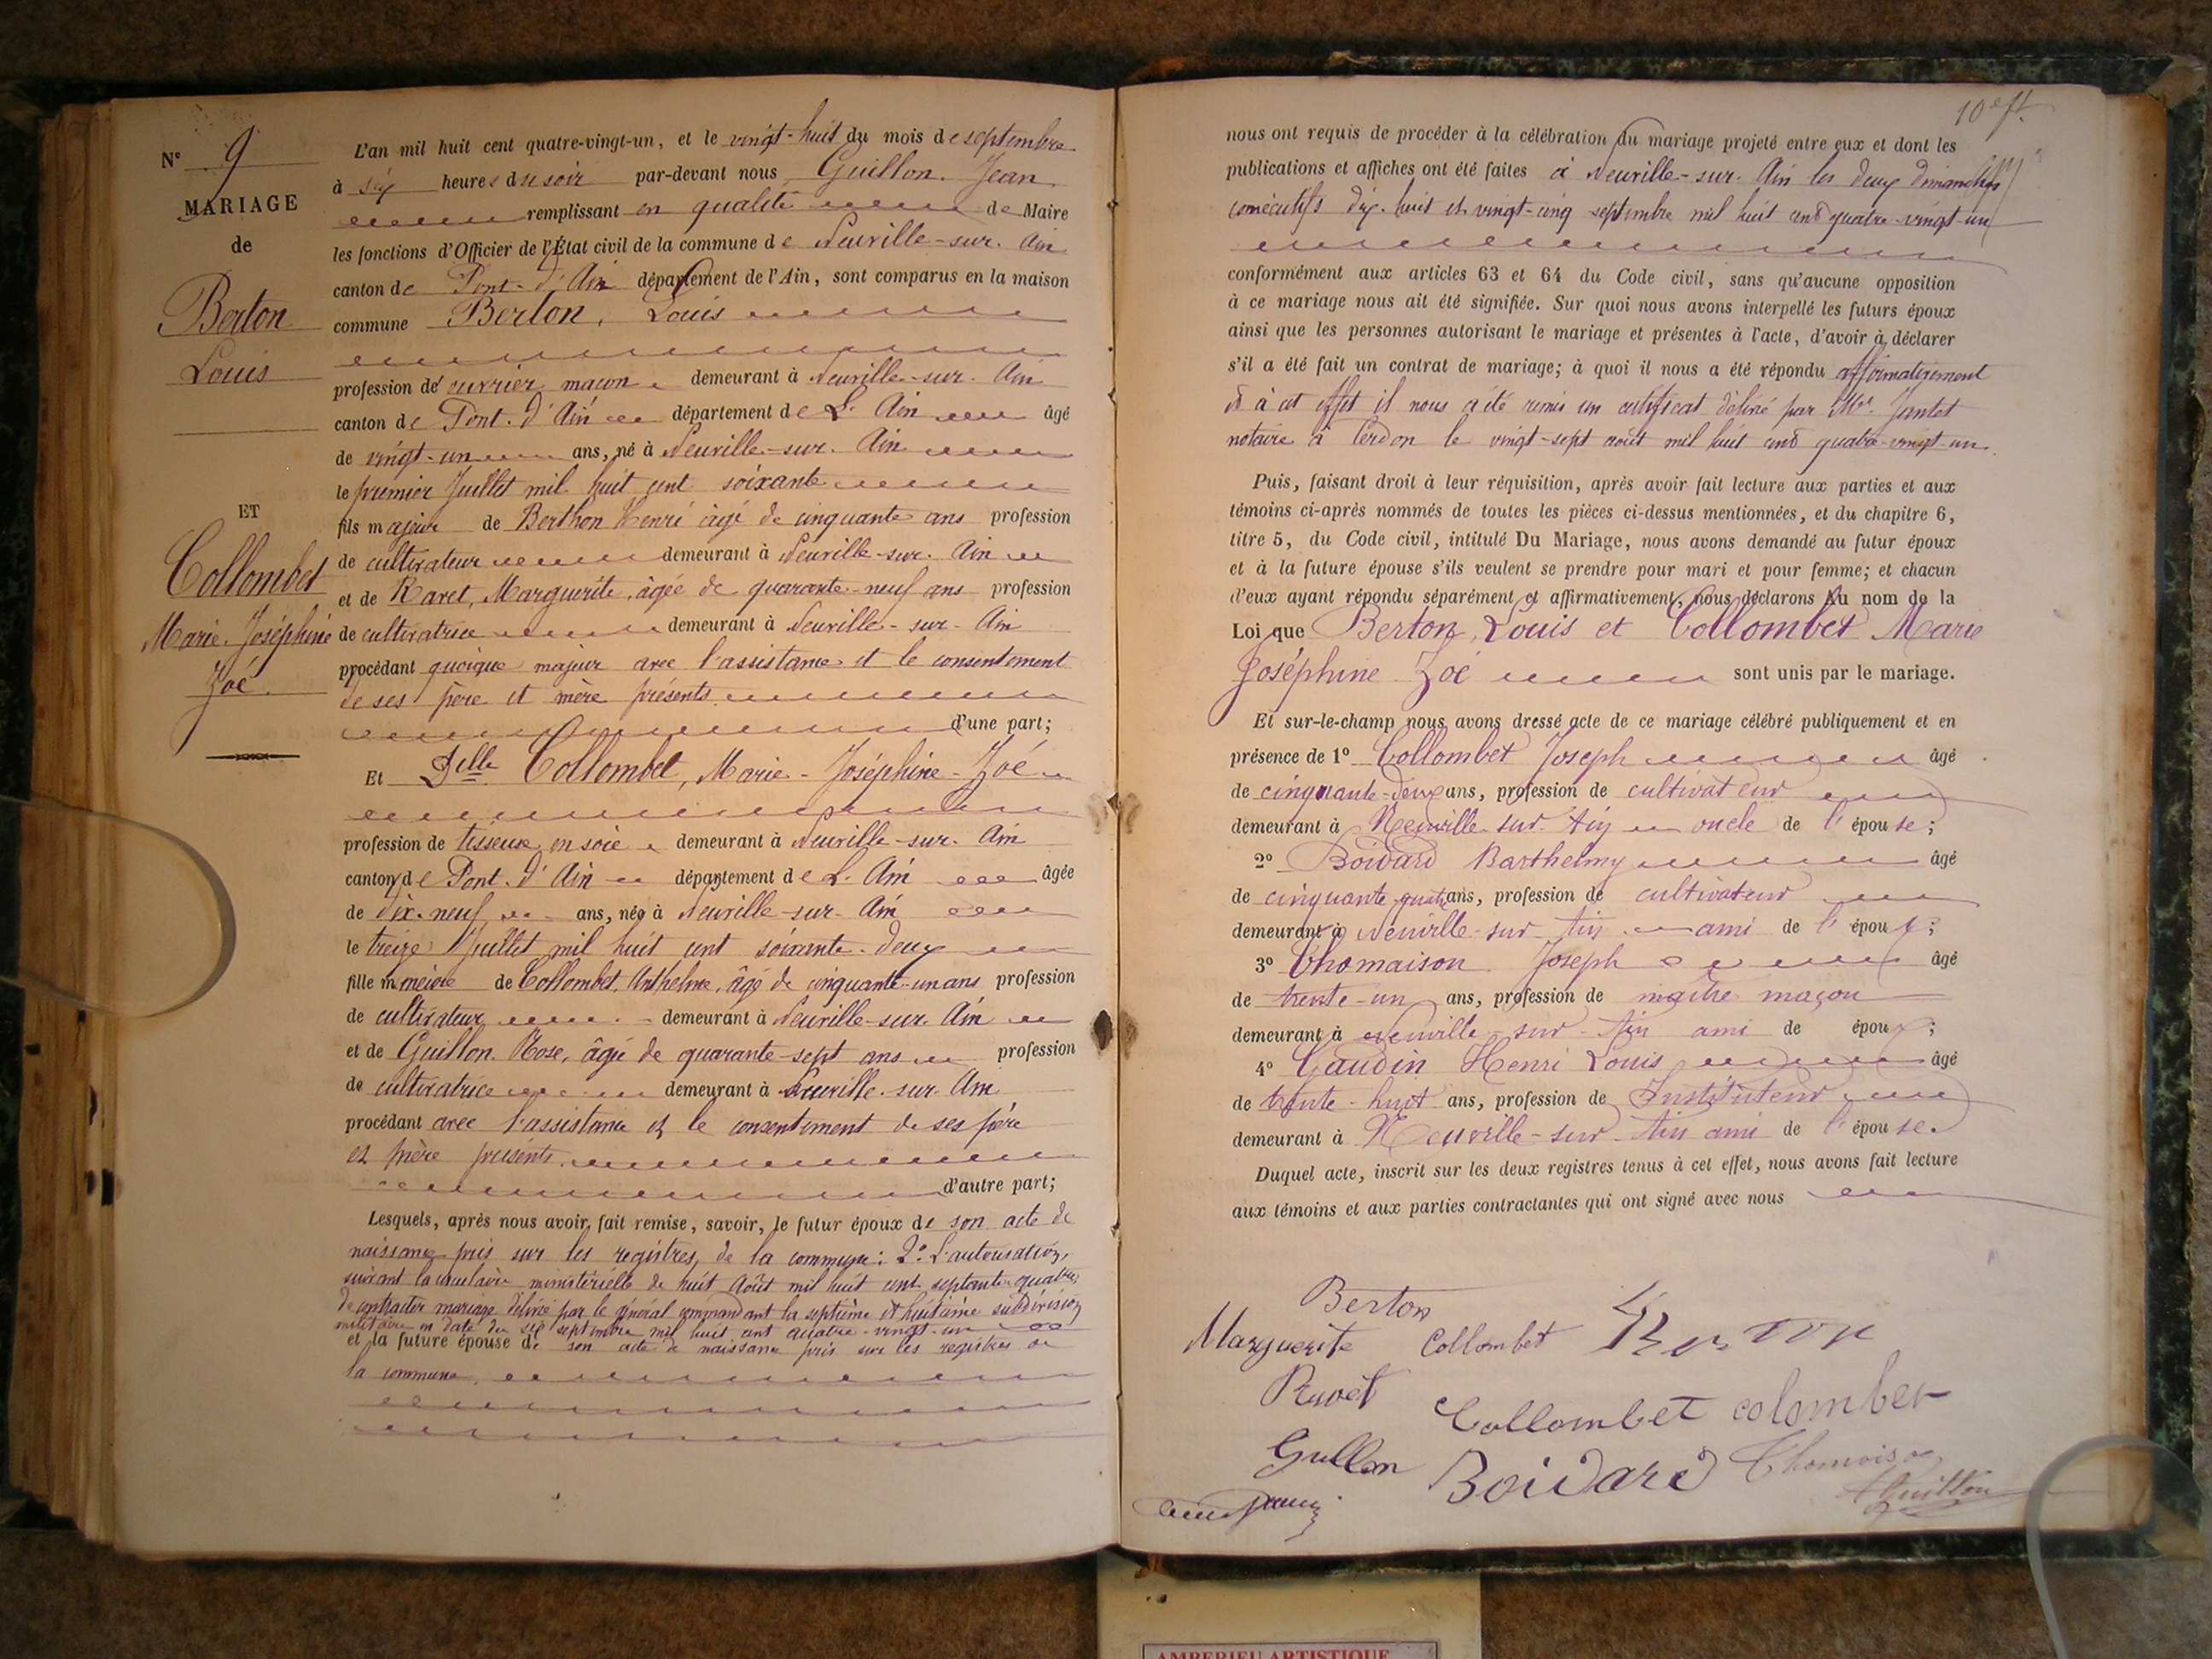 N° 9
MARIAGE
de
Berton
Louis
ET
Collombet
Marie-Joséphine
Zoé
L'an mil huit cent quatre-vingt-un, et le vingt-huit du mois de septembre
à six heures du soir par-devant nous Guillon Jean
remplissant en qualité de Maire
les fonctions d'Officier de l'État civil de la commune de Neuville-sur-Ain
canton de Pont-d'Ain département de l'Ain, sont comparus en la maison
commune Berton, Louis
profession de ouvrier maçon demeurant à Neuville-sur-Ain
canton de Pont-d'Ain département de L'Ain âgé
de vingt-un ans, né à Neuville-sur-Ain
le premier Juillet mil huit cent soixante
fils majeur de Berthon Henri âgé de cinquante ans profession
de cultivateur demeurant à Neuville-sur-Ain
et de Ravet, Marguerite, âgée de quarante-neuf ans profession
de cultivatrice demeurant à Neuville-sur-Ain
procédant quoique majeur avec l'assistance et le consentement
de ses père et mère présents
d'une part;
Et Delle Collombet, Marie-Joséphine-Zoé
profession de tisseuse en soie demeurant à Neuville-sur-Ain
canton de Pont-d'Ain département de L'Ain âgée
de dix-neuf ans, née à Neuville-sur-Ain
le treize Juillet mil huit cent soixante-deux
fille mineure de Collombet, Anthelme, âgé de cinquante-un ans profession
de cultivateur demeurant à Neuville-sur-Ain
et de Guillon Rose, âgée de quarante-sept ans profession
de cultivatrice demeurant à Neuville-sur-Ain
procédant avec l'assistance et le consentement de ses père
et mère présents
d'autre part;
Lesquels, après nous avoir fait remise, savoir, le futur époux de son acte de
naissance pris sur les registres de la commune: 2° L'autorisation,
suivant la circulaire ministérielle du huit Août mil huit cent septante-quatre,
de contracter mariage délivré par le général commandant la septième et huitième subdivision
militaire en date du six septembre mil huit cent quatre-vingt-un
et la future épouse de son acte de naissance pris sur les registres de
la commune.
10e ft.
nous ont requis de procéder à la célébration du mariage projeté entre eux et dont les
publications et affiches ont été faites à Neuville-sur-Ain les deux dimanches
consécutifs dix-huit et vingt-cinq septembre mil huit cent quatre-vingt-un
conformément aux articles 63 et 64 du Code civil, sans qu'aucune opposition
à ce mariage nous ait été signifiée. Sur quoi nous avons interpellé les futurs époux
ainsi que les personnes autorisant le mariage et présentes à l'acte, d'avoir à déclarer
s'il a été fait un contrat de mariage; à quoi il nous a été répondu affirmativement
et à cet effet il nous a été remis un certificat délivré par Me. Jantet
notaire à Cerdon le vingt-sept août mil huit cent quatre-vingt-un.
Puis, faisant droit à leur réquisition, après avoir fait lecture aux parties et aux
témoins ci-après nommés de toutes les pièces ci-dessus mentionnées, et du chapitre 6,
titre 5, du Code civil, intitulé Du Mariage, nous avons demandé au futur époux
et à la future épouse s'ils veulent se prendre pour mari et pour femme; et chacun
d'eux ayant répondu séparément et affirmativement, nous déclarons au nom de la
Loi que Berton, Louis et Collombet Marie
Joséphine Zoé sont unis par le mariage.
Et sur-le-champ nous avons dressé acte de ce mariage célébré publiquement et en
présence de 1° Collombet Joseph âgé
de cinquante-deux ans, profession de cultivateur
demeurant à Neuville-sur-Ain oncle de l'épouse;
2° Boivard Barthelmy âgé
de cinquante quatre ans, profession de cultivateur
demeurant à Neuville-sur-Ain ami de l'époux;
3° Thomaison Joseph âgé
de trente-un ans, profession de maître maçon
demeurant à Neuville-sur-Ain ami de époux;
4° Gaudin Henri Louis âgé
de trente-huit ans, profession de Instituteur
demeurant à Neuville-sur-Ain ami de l'épouse.
Duquel acte, inscrit sur les deux registres tenus à cet effet, nous avons fait lecture
aux témoins et aux parties contractantes qui ont signé avec nous
Berton
Marguerite Collombet Berton
Ravet
Collombet colomber
Gullon Boivard Thomaison
Guillon
AMBERIEU ARTISTIQUE